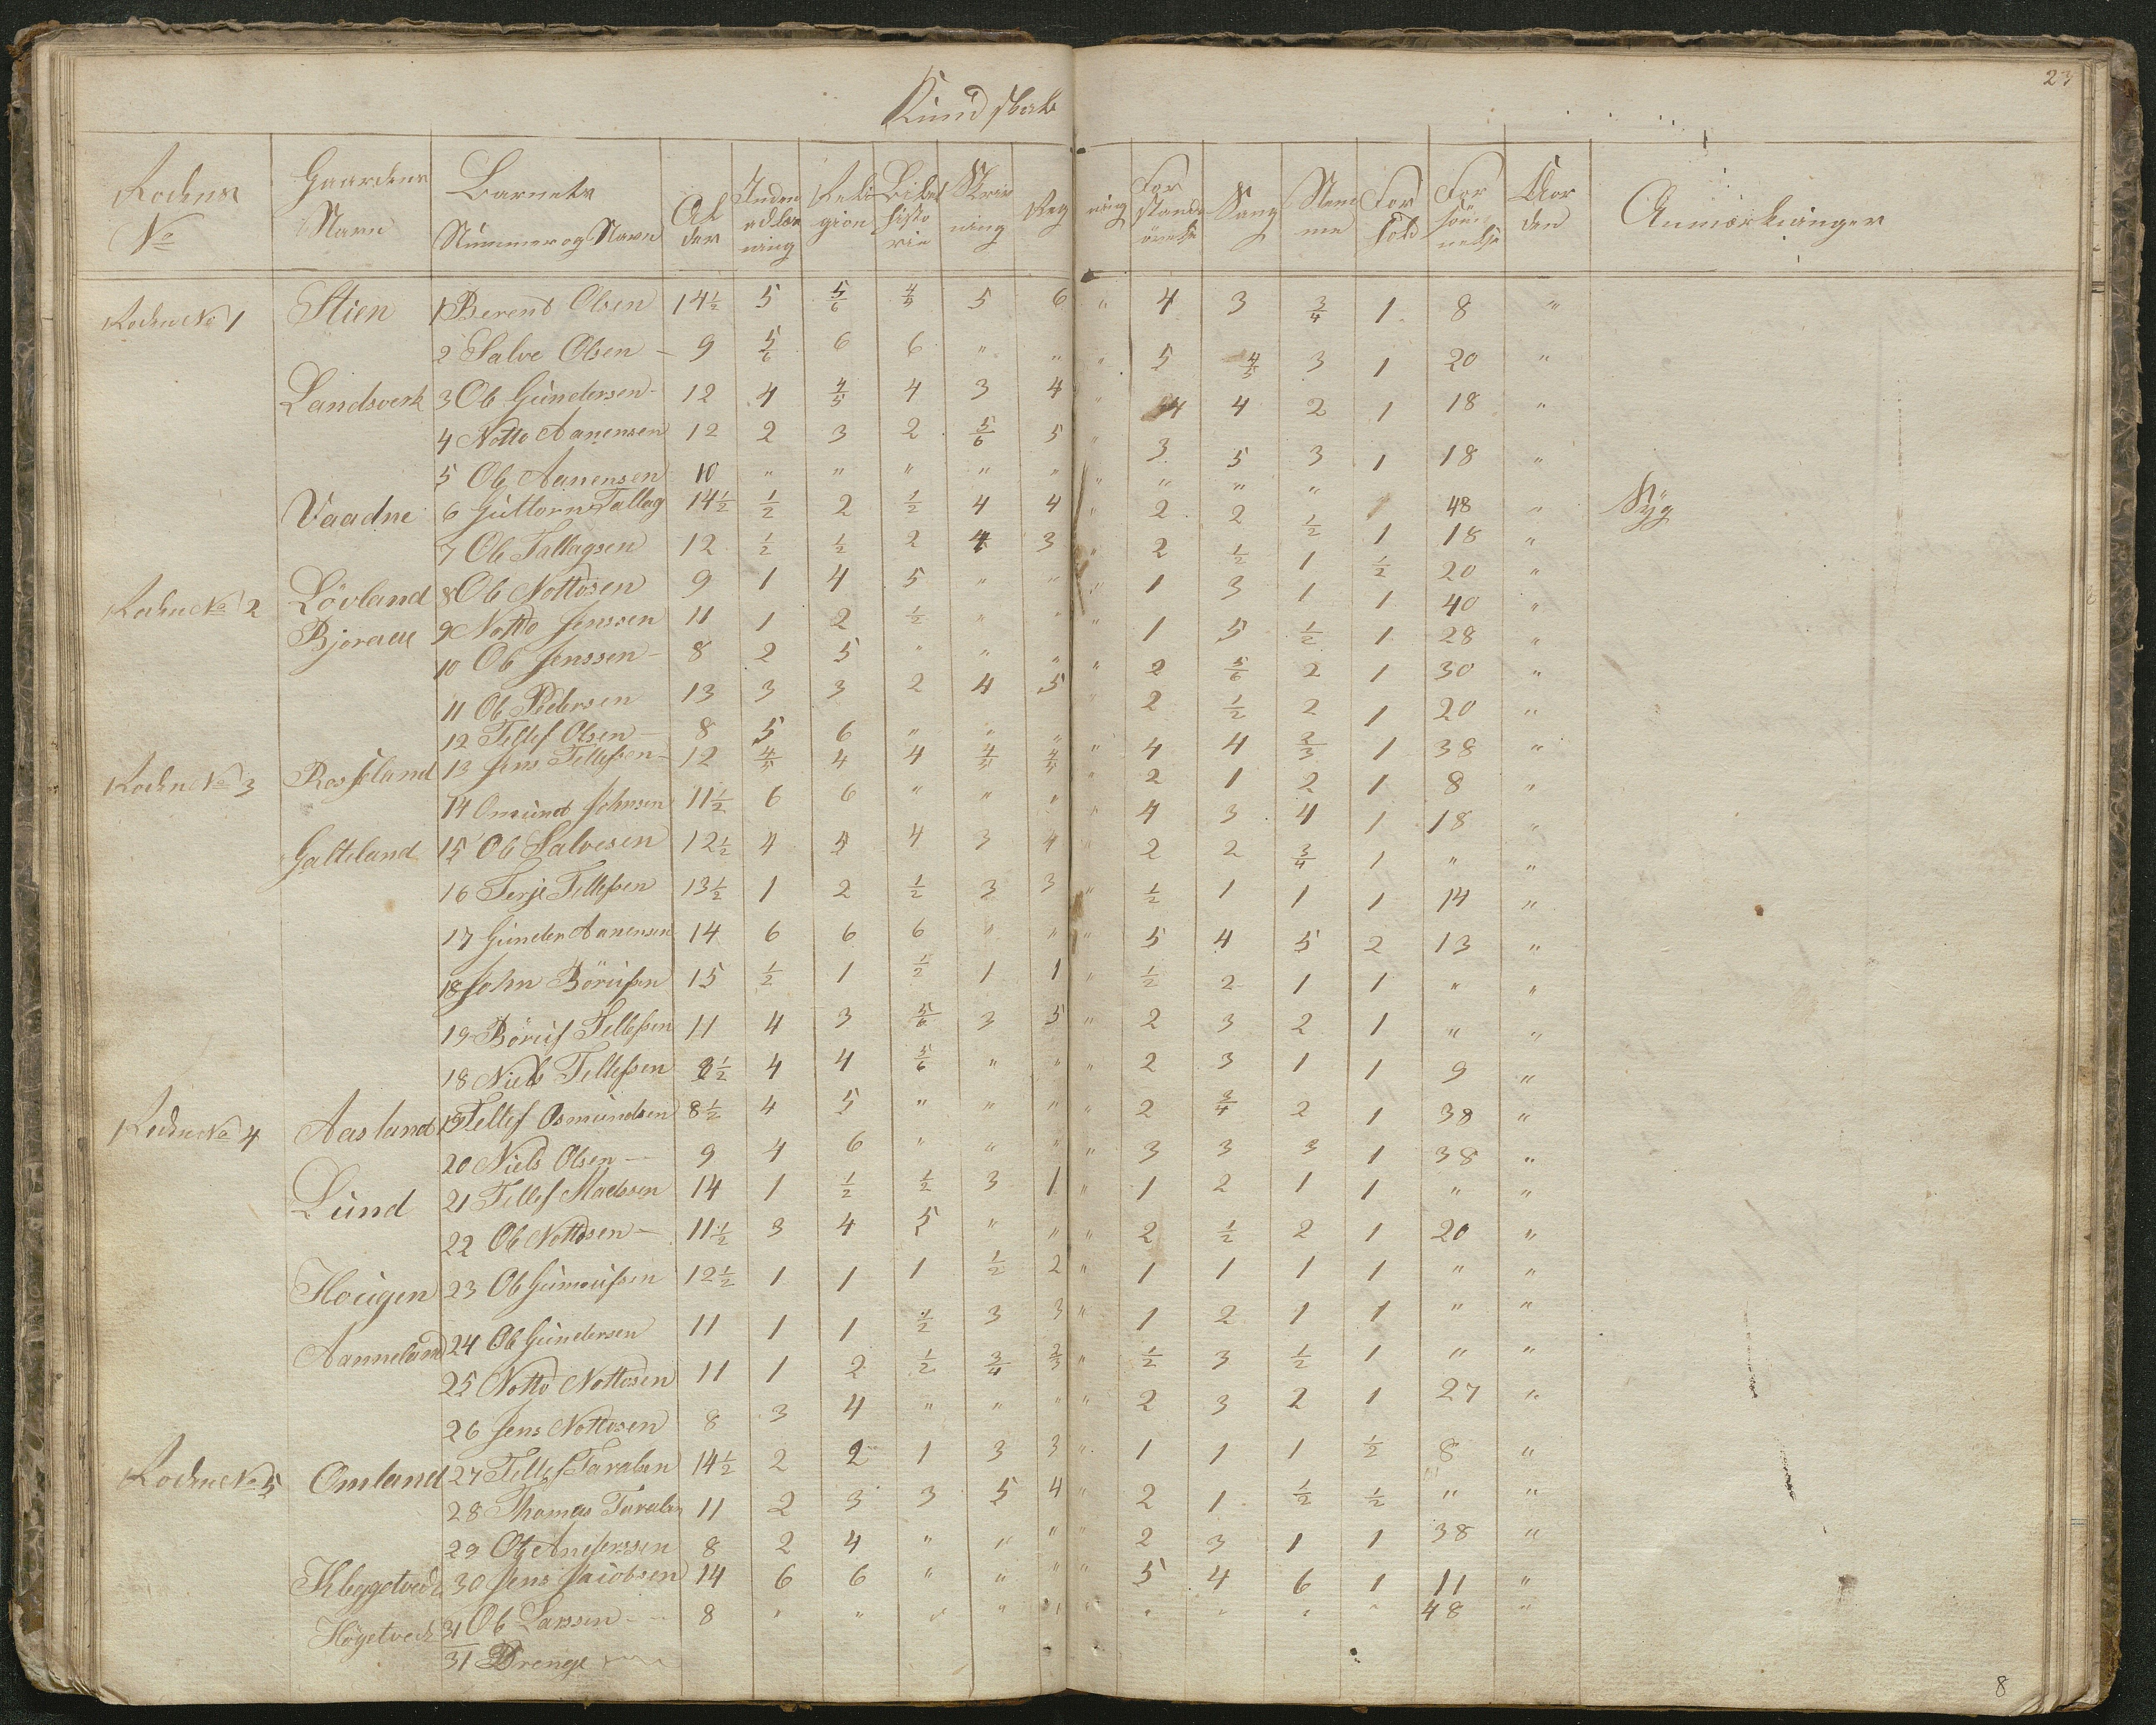 23
Kundskab
Rodens No Gaardens Navn Barnets Nummer og Navn Alder Inden adlæsning Religion Bibelhistorie Skrivning Regning Forstandsövelse Sang Stemme Forhold Forsömmelse Orden Anmærkninger
Roden No 1 Stien 1 Berent Olsen 14½ 5 5/6 4/5 5 6 " 4 3 3/4 1 8 "
2 Salve Olsen 9 5/6 6 6 " " " 5 4/5 3 1 20 "
Landsverk 3 Ole Gundersen 12 4 4/5 4 3 4 " 4 4 2 1 18 "
4 Notto Aanensen 12 2 3 2 5/6 5 " 3 5 3 1 18 "
5 Ole Aanensen 10 " " " " " " " " " 48 " Syg
Vaadne 6 Guttorm Tallag 14½ ½ 2 ½ 4 4 " 2 2 ½ 1 18 "
7 Ole Tallagsen 12 ½ ½ 2 4 3 " 2 ½ 1 ½ 20 "
Roden No 2 Lövland 8 Ole Nottosen 9 1 4 5 " " " 1 3 1 1 40 "
Bjoraae 9 Notto Jenssen 11 1 2 ½ " " " 1 5 ½ 1 28 "
10 Ole Jenssen 8 2 5 " " " " 2 5/6 2 1 30 "
11 Ole Pedersen 13 3 3 2 4 5 " 2 ½ 2 1 20 "
12 Tellef Olsen 8 5 6 " " " " 4 4 2/3 1 38 "
Roden No 3 Rosseland 13 Jens Tellefsen 12 4/5 4 4 4/5 4/5 " 2 1 2 1 8 "
14 Omund Johnsen 11½ 6 6 " " " " 4 3 4 1 18 "
Galteland 15 Ole Salvesen 12½ 4 4 4 3 4 " 2 2 3/4 1 " "
16 Terje Tellefsen 13½ 1 2 ½ 3 3 " ½ 1 1 1 14 "
17 Gunder Aanensen 14 6 6 6 " " " 5 4 5 2 13 "
18 John Börufsen 15 ½ 1 ½ 1 1 " ½ 2 1 1 " "
19 Böruf Tellefsen 11 4 3 5/6 3 5 " 2 3 2 1 " "
18 Niels Tellefsen 8½ 4 4 5/6 " " " 2 3 1 1 9 "
Roden No 4 Aasland 19 Tellef Osmundsen 8½ 4 5 " " " " 2 3/4 2 1 38 "
20 Niels Olsen 9 4 6 " " " " 3 3 3 1 38 "
Lund 21 Tellef Madssen 14 1 ½ ½ 3 1 " 1 2 1 1 " "
22 Ole Nottosen 11½ 3 4 5 " " " 2 ½ 2 1 20 "
Hougen 23 Ole Gunnufsen 12½ 1 1 1 ½ 2 " 1 1 1 1 " "
Aanneland 24 Ole Gundersen 11 1 1 ½ 3 3 " 1 2 1 1 " "
25 Notto Nottosen 11 1 2 ½ 3/4 2/3 " ½ 3 ½ 1 " "
26 Jens Nottosen 8 3 4 " " " " 2 3 2 1 27 "
Roden No 5 Omland 27 Tellef Taralsen 14½ 2 2 1 3 3 " 1 1 1 ½ 8 "
28 Thomas Taralsen 11 2 3 3 5 4 " 2 1 ½ ½ " "
29 Ole Anderssen 8 2 4 " " " " 2 3 1 1 38 "
Kleggetvedt 30 Jens Jacobsen 14 6 6 " " " " 5 4 6 1 11 "
Högetvedt 31 Ole Larssen 8 " " " " " " " " " " 48 "
31 Drenge
8